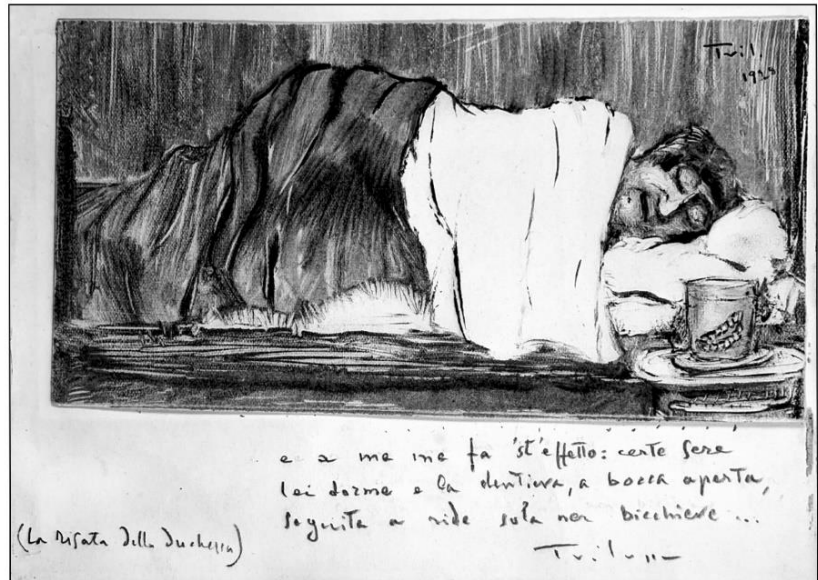 Tril.
192
e a me me fa 'st'effetto: certe sere
lei dorme e la dentiera, a bocca aperta,
seguita a ride sola ner bicchiere...
(La risata della Duchessa)
Trilussa